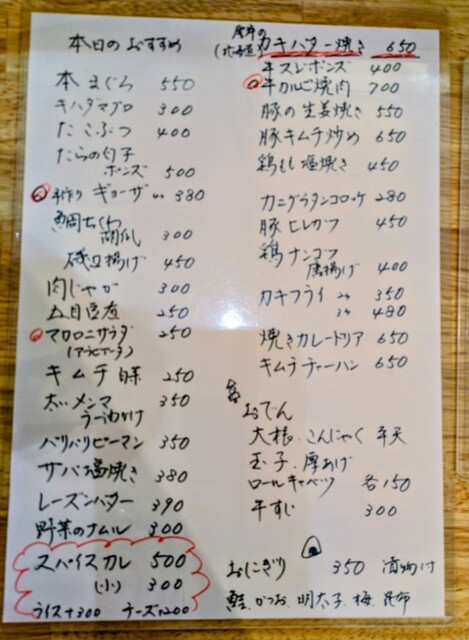 本日のおすすめ
本まぐろ 550
キハダマグロ 300
たこぶつ 400
たらの白子
ポンズ 500
手作りギョーザ 380
鯛ちくわ
300
磯辺揚げ 450
肉じゃが 300
五目豆煮 250
マカロニサラダ 250
(アラビアータ)
キムチ白菜 250
太いメンマ 350
ラー油がけ
バリバリピーマン 350
サバ塩焼き 380
レーズンバター 390
野菜のナムル 300
スパイスカレー 500
(小) 300
ライス+300 チーズ+200
厚岸の
(北海道) カキバター焼き 650
牛スジポンズ 400
牛カルビ焼肉 700
豚の生姜焼き 550
豚キムチ炒め 650
鶏もも塩焼き 450
カニグラタンコロッケ 280
豚ヒレカツ 450
鶏ナンコツ
唐揚げ 400
カキフライ 2ケ 350
3ケ 480
焼きカレードリア 650
キムチチャーハン 650
おでん
大根、こんにゃく 平天
玉子、厚あげ
ロールキャベツ 各150
牛すじ 300
おにぎり 350 漬物付
鮭、かつお、明太子、梅、昆布